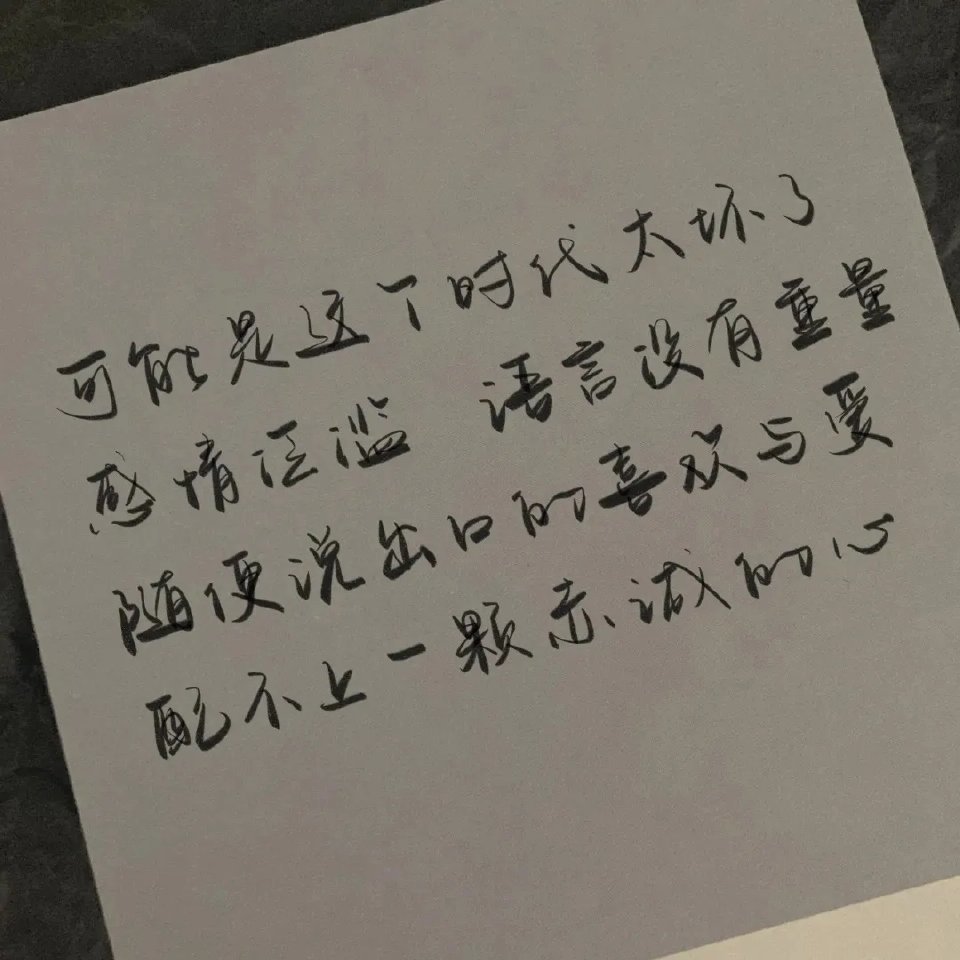 可能是这个时代太坏了
感情泛滥 语言没有重量
随便说出口的喜欢与爱
配不上一颗赤诚的心